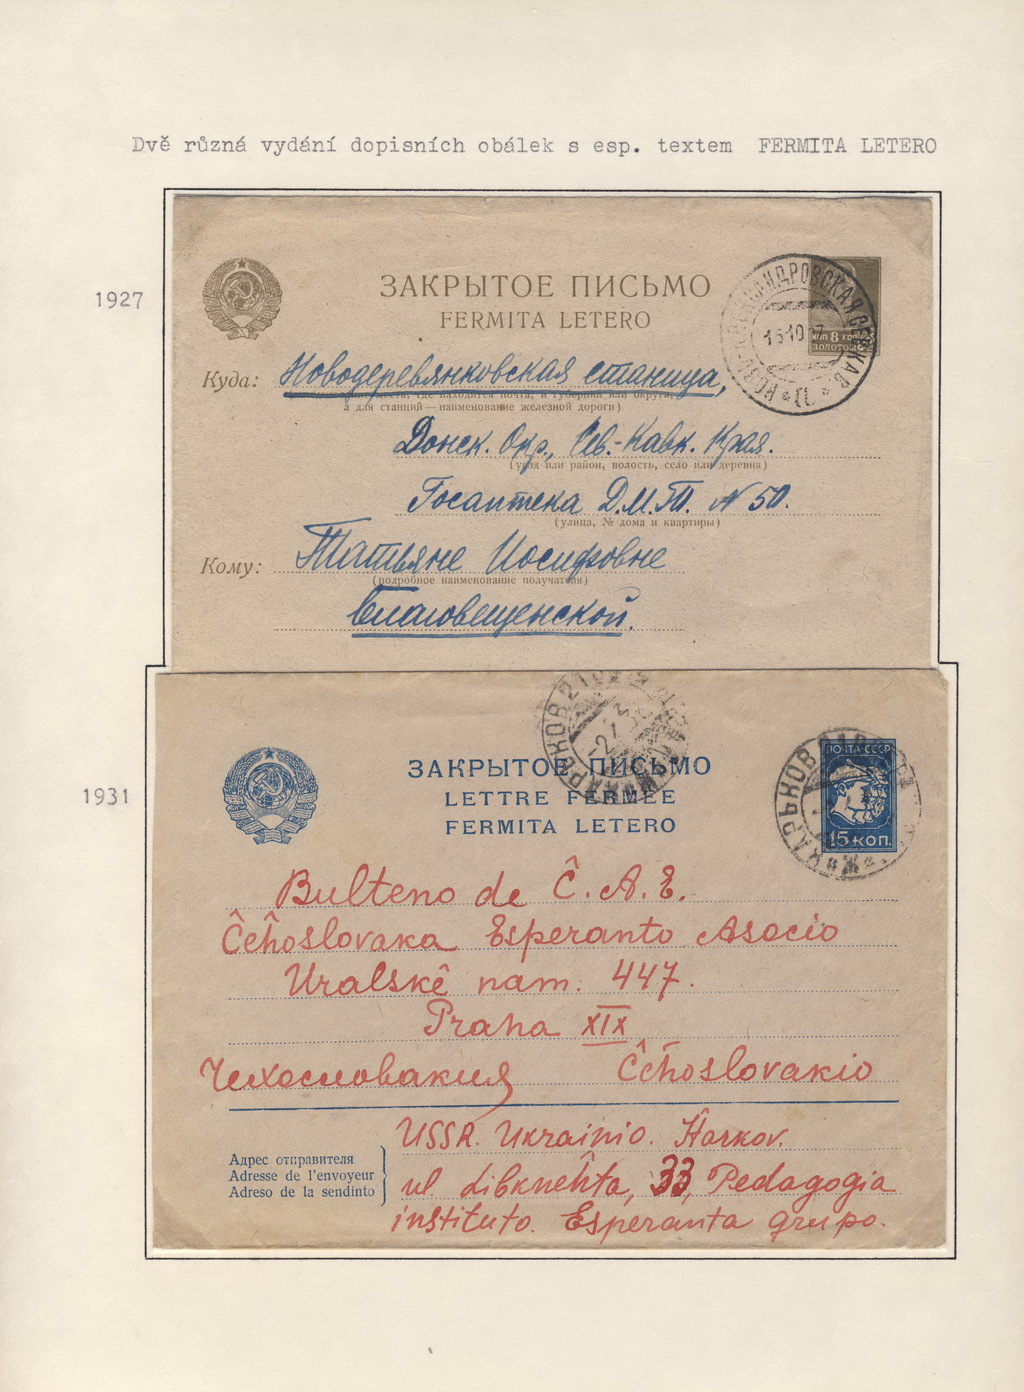 Dvě různá vydání dopisních obálek s esp. textem FERMITA LETERO
1927
ЗАКРЫТОЕ ПИСЬМО
FERMITA LETERO
15 10 27
коп 8 коп
ЗОЛОТОМ
Куда: Новодеревянковская станица,
где находится почта, и губерния или округа,
а для станций — наименование железной дороги)
Донск. Окр., Сев.-Кавк. Края.
(уезд или район, волость, село или деревня)
Госаптека Д.М.Т. № 50.
(улица, № дома и квартиры)
Кому: Татьяне Иосифовне
(подробное наименование получателя)
Благовещенской.
1931
ХАРЬКОВ
ЗАКРЫТОЕ ПИСЬМО
LETTRE FERMÉE
FERMITA LETERO
ПОЧТА-СССР
15 КОП.
ХАРЬКОВ
Bulteno de Ĉ. A. E.
Ĉeĥoslovaka Esperanto Asocio
Uralskê nam. 447.
Praha XIX
Чехословакия Ĉeĥoslovakio
USSR. Ukrainio. Ĥarkov.
Адрес отправителя
Adresse de l'envoyeur
Adreso de la sendinto
ul Libkneĥta, 33, Pedagogia
instituto. Esperanta grupo.